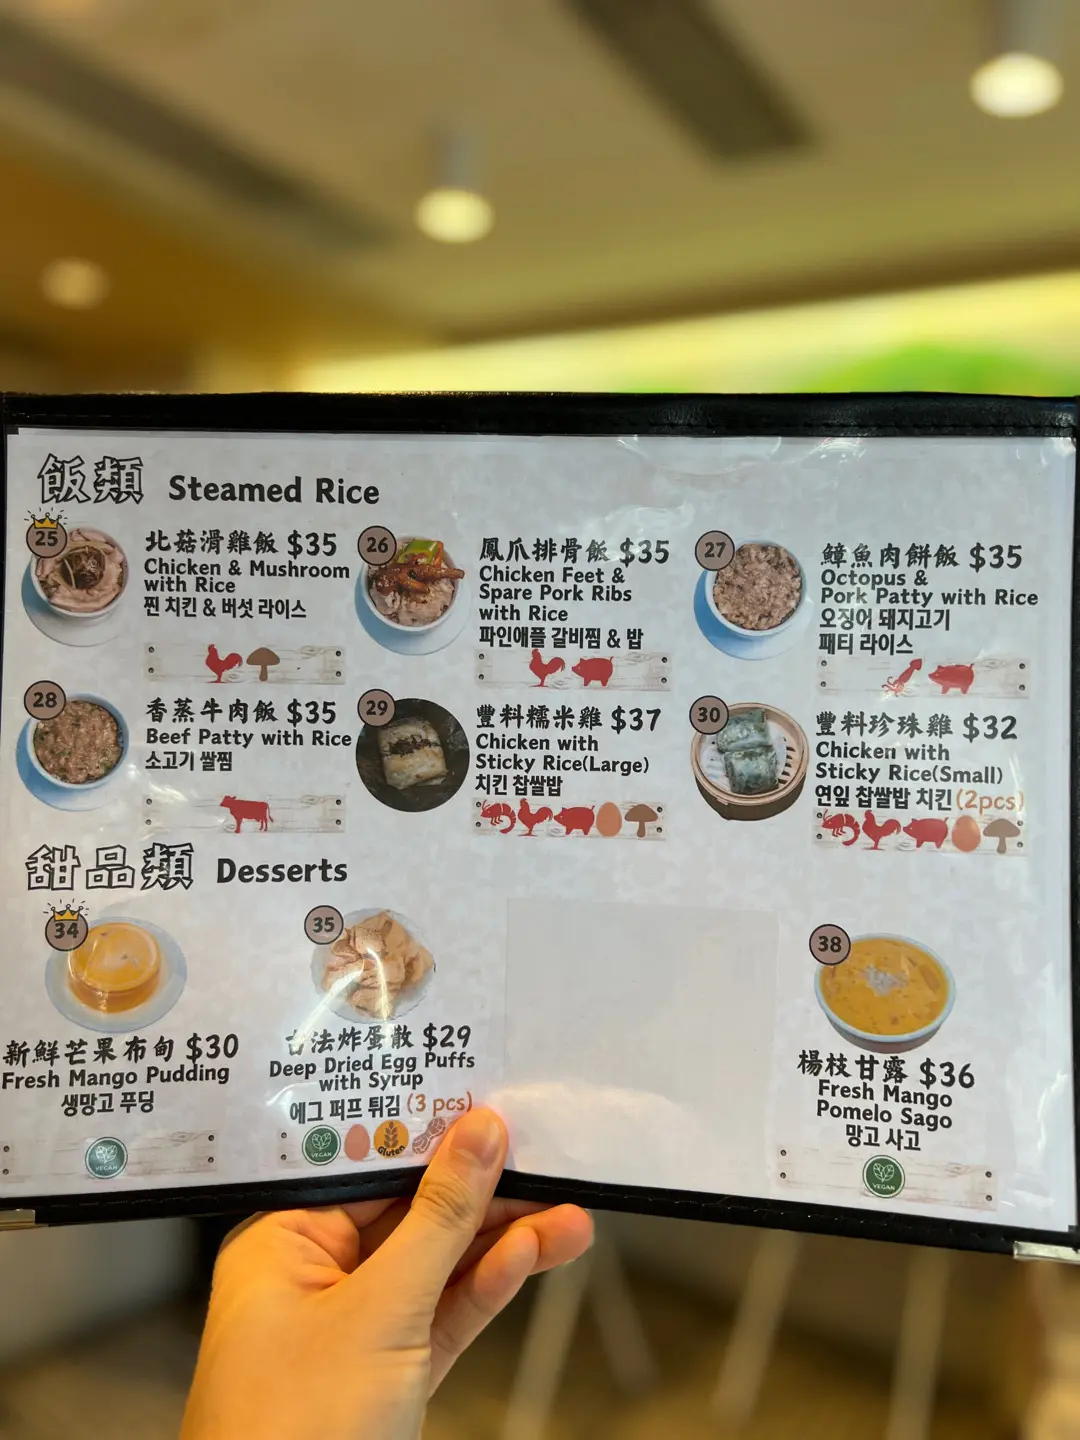 飯類 Steamed Rice
25
北菇滑雞飯 $35
Chicken & Mushroom
with Rice
찐 치킨 & 버섯 라이스
26
鳳爪排骨飯 $35
Chicken Feet &
Spare Pork Ribs
with Rice
파인애플 갈비찜 & 밥
27
鱆魚肉餅飯 $35
Octopus &
Pork Patty with Rice
오징어 돼지고기
패티 라이스
28
香蒸牛肉飯 $35
Beef Patty with Rice
소고기 쌀찜
29
豐料糯米雞 $37
Chicken with
Sticky Rice(Large)
치킨 찹쌀밥
30
豐料珍珠雞 $32
Chicken with
Sticky Rice(Small)
연잎 찹쌀밥 치킨 (2pcs)
甜品類 Desserts
34
新鮮芒果布甸 $30
Fresh Mango Pudding
생망고 푸딩
VEGAN
35
古法炸蛋散 $29
Deep Dried Egg Puffs
with Syrup
에그 퍼프 튀김 (3 pcs)
VEGAN
Gluten
38
楊枝甘露 $36
Fresh Mango
Pomelo Sago
망고 사고
VEGAN